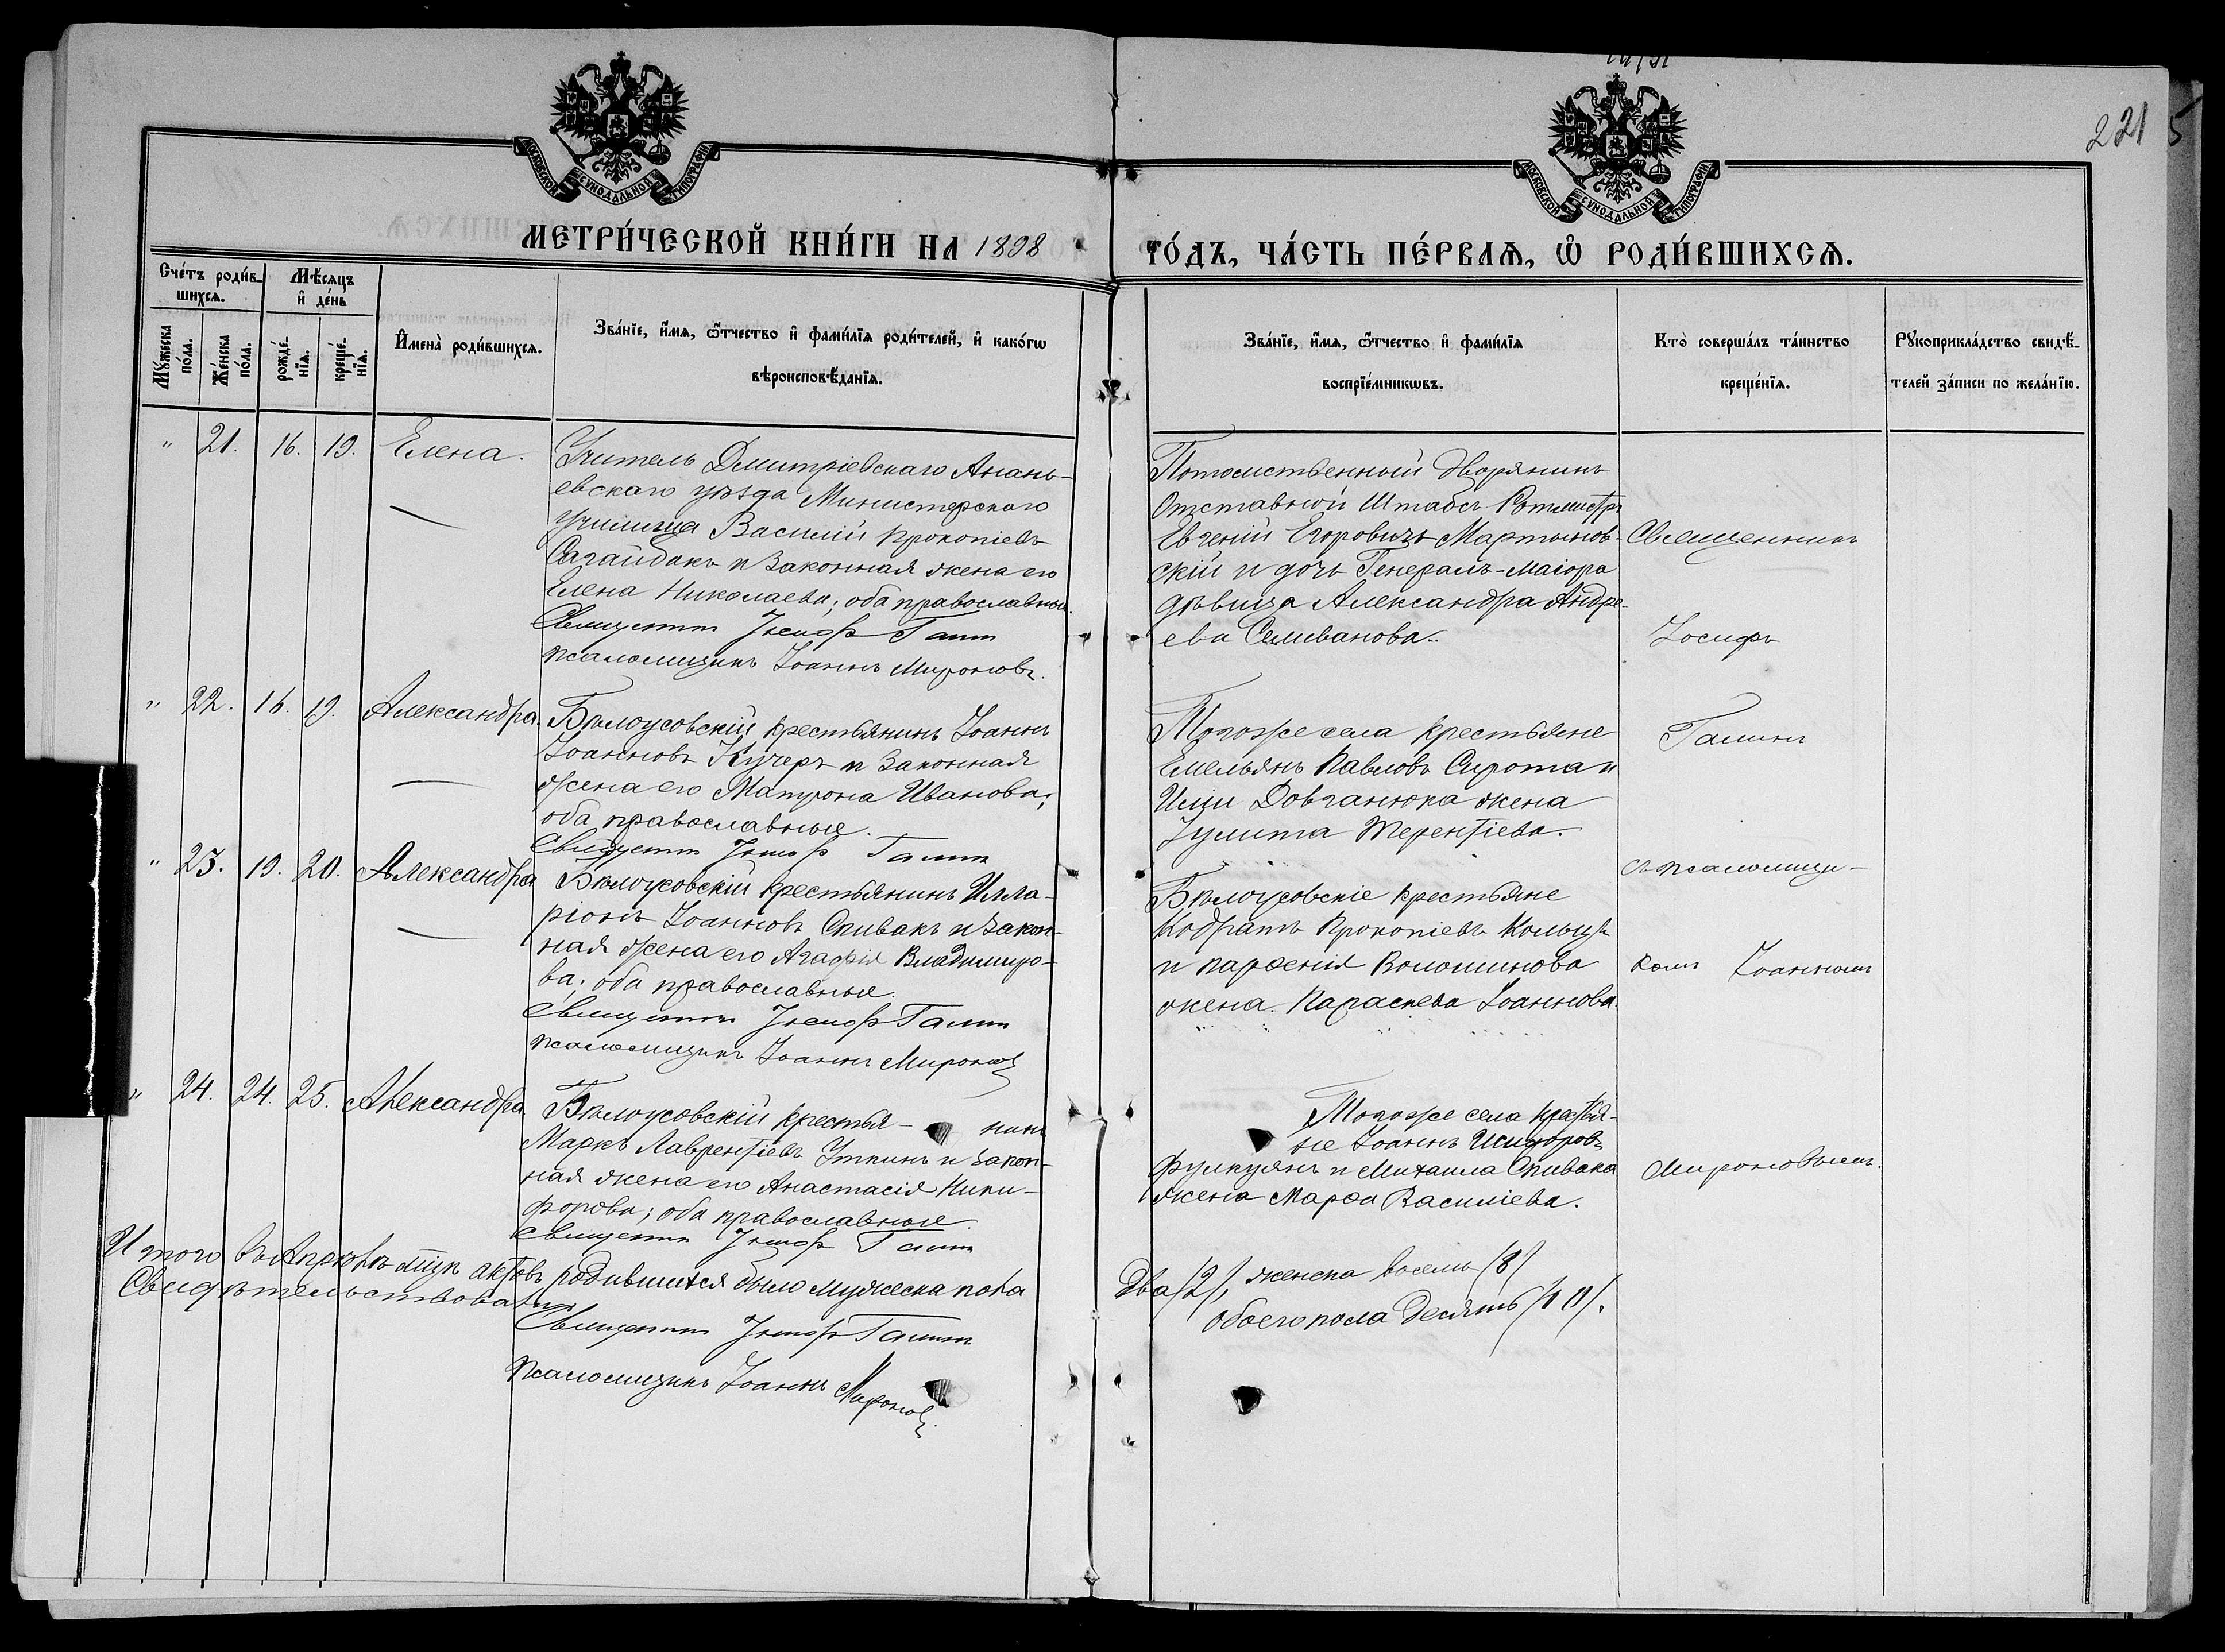 221
МОСКОВСКОЙ СѴНОДАЛЬНОЙ ТИПОГРАФІИ
МОСКОВСКОЙ СѴНОДАЛЬНОЙ ТИПОГРАФІИ
МЕТРИ́ЧЕСКОЙ КНИ́ГИ НА 1898 ГО́ДЪ, ЧА́СТЬ ПЕ́РВАѦ, Ѡ РОДИ́ВШИХСѦ.
Сче́тъ роди́в-
шихсѧ.
Мꙋ́жеска по́ла.
Же́нска по́ла.
Мѣ́сѧцъ
и҆ де́нь
рожде́нїѧ.
креще́нїѧ.
И҆мена̀ роди́вшихсѧ.
Зва́нїе, и҆́мѧ, ѻ҆́тчество и҆ фами́лїѧ роди́телей, и҆ како́гѡ
вѣроисповѣ́данїѧ.
Зва́нїе, и҆́мѧ, ѻ҆́тчество и҆ фами́лїѧ
воспрїе́мникѡвъ.
Кто̀ соверша́лъ та́инство
креще́нїѧ.
Рꙋкоприкла́дство свидѣ́-
телей за́писи по жела́нїю.
" 21. 16. 19. Елена.
Учитель Дмитріевскаго Анань-
евскаго уѣзда Министерскаго
училища Василій Прокопіевъ
Сагайдакъ и законная жена его
Елена Николаева; оба православные.
Священникъ Іосифъ Галинъ
Псаломщикъ Іоаннъ Мироновъ.
Потомственный дворянинъ
Отставной Штабсъ Ротмистръ
Евгеній Егоровичъ Мартынов-
скій и дочь Генералъ-Маіора
дѣвица Александра Андре-
ева Селиванова.
Священникъ
Іосифъ
" 22. 16. 19. Александра.
Бѣлоусовскій крестьянинъ Іоаннъ
Іоанновъ Кучеръ и законная
жена его Матрона Иванова;
оба православные.
Священникъ Іосифъ Галинъ
Тогоже села крестьяне
Емельянъ Павловъ Сирота и
Довганюка жена
Іулита Терентіева.
Галинъ
" 23. 19. 20. Александра
Бѣлоусовскій крестьянинъ Илла-
ріонъ Іоанновъ Спивакъ и закон-
ная жена его Агафія Владимиро-
ва; оба православные.
Священникъ Іосифъ Галинъ
Псаломщикъ Іоаннъ Мироновъ
Бѣлоусовскіе крестьяне
Кодратъ Прокопіевъ
и Парѳенія Волошинова
жена Параскева Іоаннова.
съ псаломщи-
комъ Іоанномъ
" 24. 24. 25. Александра
Бѣлоусовскій крестья- нинъ
Маркъ Лаврентіевъ Уткинъ и закон-
ная жена его Анастасія Ники-
форова; оба православные.
Священникъ Іосифъ Галинъ
Тогоже села крестья-
не Іоаннъ Исидоровъ
и Михаила Спивака
жена Марѳа Василіева.
Мироновымъ.
Итого въ Апрѣлѣ мцѣ актовъ родившихся было мужеска пола
два /2/, женска восемь /8/
обоего пола десять /10/.
Свидѣтельствовали
Священникъ Іосифъ Галинъ
Псаломщикъ Іоаннъ Мироновъ.